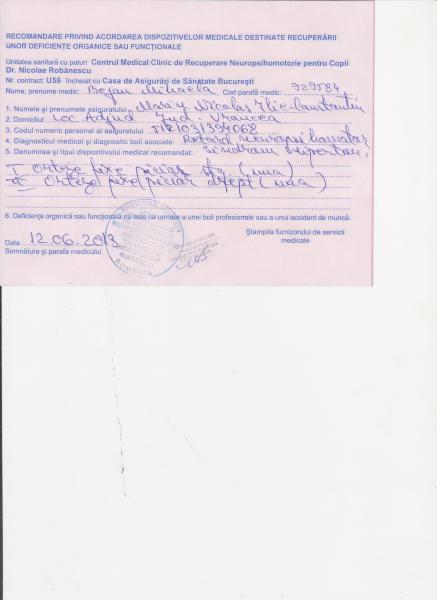 RECOMANDARE PRIVIND ACORDAREA DISPOZITIVELOR MEDICALE DESTINATE RECUPERĂRII
UNOR DEFICIENȚE ORGANICE SAU FUNCȚIONALE
Unitatea sanitară cu paturi Centrul Medical Clinic de Recuperare Neuropsihomotorie pentru Copii
Dr. Nicolae Robănescu
Nr. contract: U56 încheiat cu Casa de Asigurări de Sănătate București
Nume, prenume medic: Bejan Mihaela Cod parafă medic: 929584
1. Numele și prenumele asiguratului Nicolas Ilie-Constantin
2. Domiciliul loc Adjud Jud. Vrancea
3. Codul numeric personal al asiguratului
4. Diagnosticul medical și diagnostic boli asociate: Retard neuropsihomotor
5. Denumirea și tipul dispozitivului medical recomandat: Sindrom
I Orteze fixe picior stg (una)
II Orteze picior drept (una)
6. Deficiența organică sau funcțională nu este ca urmare a unei boli profesionale sau a unui accident de muncă.
Ștampila furnizorului de servicii
medicale
Data 12.06.2013
Semnătura și parafa medicului
ROMÂNIA